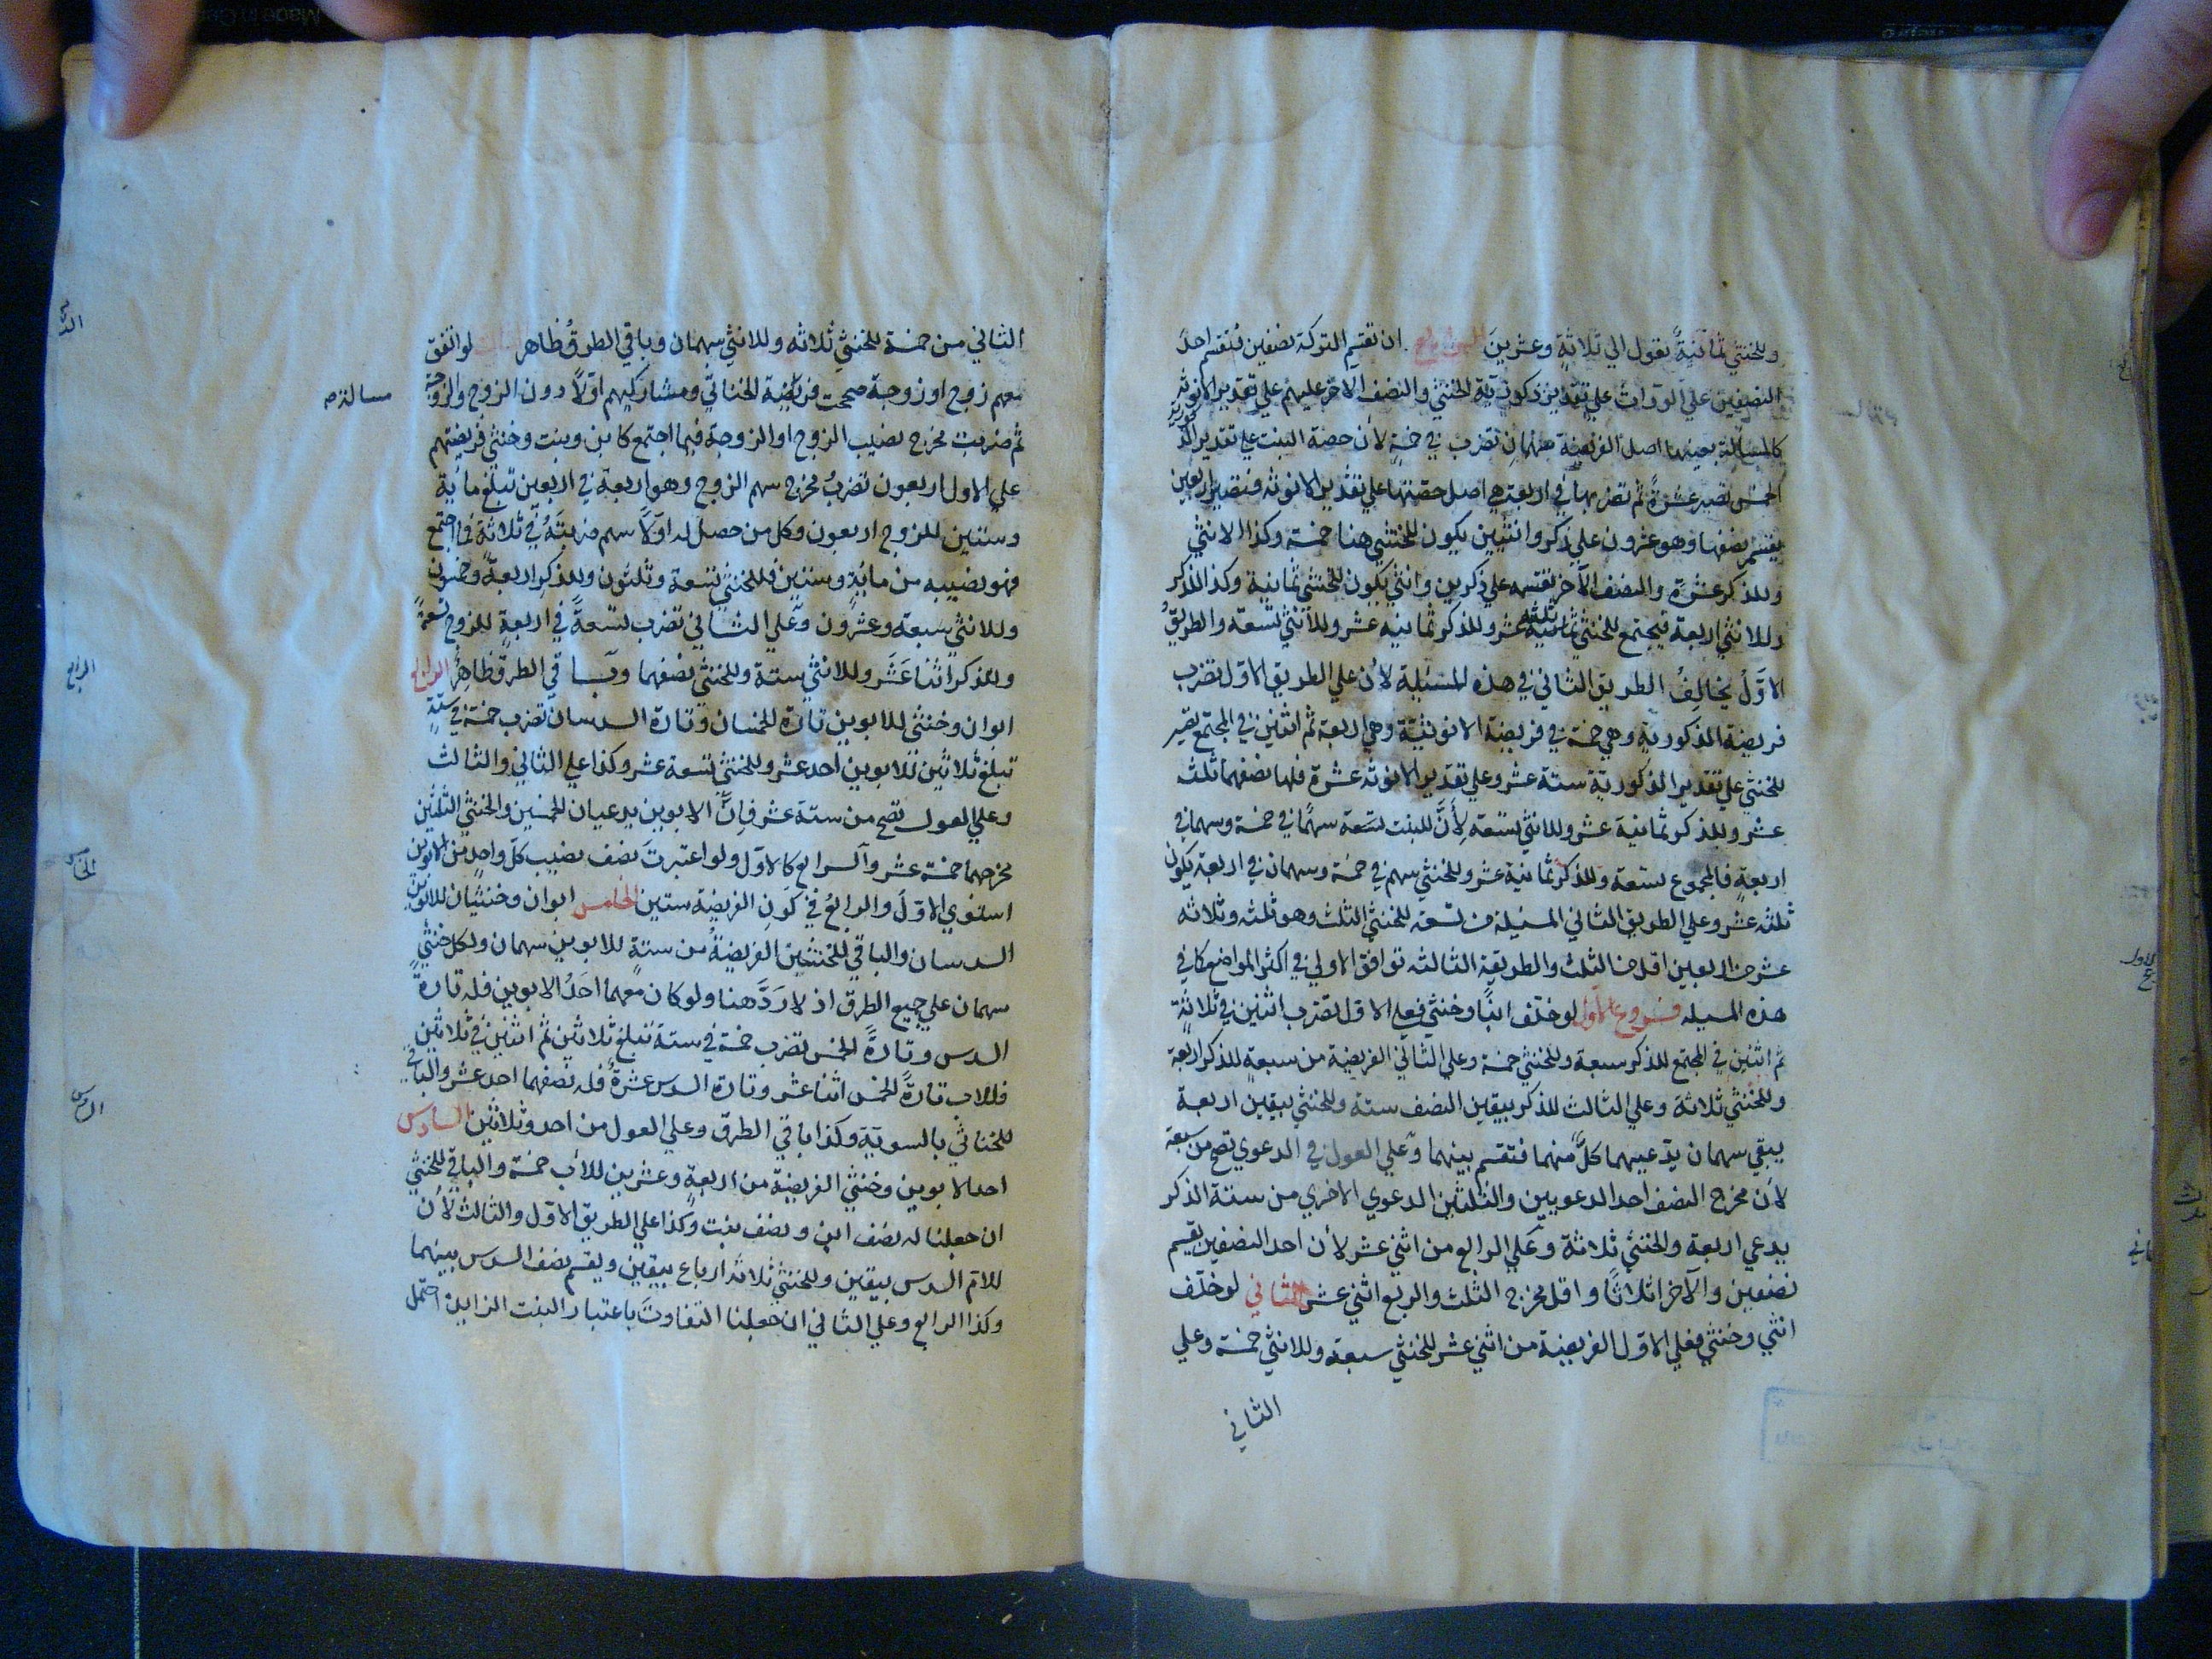 وللخنثي ثمانيةً يقول الي ثلاثةٍ وعشرينَ الرابع ان تقسم التركة نصفين فتقسم احدَ
النصفين علي الورّاث علي تقدير ذكوريّة الخنثي والنصف الآخر عليهم علي تقدير الانوثه
كالمسألة بعينها اصل الفريضة سهمان تضرب في خمسةٍ لأن حصة البنت علي تقدير الذكوريّة
الخمس تصير عشرةً ثم تضربها في اربعة هي اصل حصّتها علي تقدير الانوثه فتصير اربعين
يقسم نصفها وهو عشرون علي ذكر وانثيين يكون للخنثي هنا خمسة وكذا الانثي
وللذكر عشرة والنصف الآخر تقسمه علي ذكرين وانثي يكون للخنثي ثمانية وكذا الذكر
وللانثي اربعة فيجتمع للخنثي ثلثه عشر وللذكر ثمانيه عشر وللأنثي تسعة والطريقُ
الاوّل يخالِفُ الطريق الثاني في هذه المسئلة لأن علي الطريق الاول تضرب
فريضة الذكورية وهي خمسة في فريضة الانوثيّة وهي اربعة ثم اثنين في المجتمع يصير
للخنثي علي تقدير الذكوريّة ستة عشر وعلي تقدير الانوثه عشرة فلها نصفهما ثلث
عشر وللذكر ثمانية عشر وللانثي تسعه لأَنَّ للبنت تسعة سهمًا في خمسة وسهما في
اربعةٍ فالمجموع تسعة وللذكر ثمانية عشر وللخنثي سهم في خمسة وسهمان في اربعة يكون
ثلثه عشر وعلي الطريق الثاني المسئلة من تسعه للخنثي الثلث وهو ثلثه وثلاثه
عشر من اربعين اقل من الثلث والطريقة الثالثه توافق الاولي في اكثر المواضع كما في
هذه المسيله فروع الاول لو خلّف ابنًا وخنثي فعلي الاول تضرب اثنين في ثلاثةٍ
ثم اثنين في المجتمع للذكر سبعة وللخنثي خمسة وعلي الثاني الفريضة من سبعةٍ للذكر اربعة
وللخنثي ثلاثة وعلي الثالث للذكر بيقين النصف ستة وللخنثي بيقين اربعة
يبقي سهمان يدّعيهما كلٌّ منهما فتقسم بينهما وعلي العول في الدعوي تصح من سبعة
لأن مخرج النصف احد الدعويين والثلثين الدعوي الاخري من ستة الذكر
يدعي اربعة والخنثي ثلاثة وعلي الرابع من اثني عشر لأن احد النصفين يقسم
نصفين والآخر اثلاثًا واقل مخرج الثلث والربع اثني عشر الثاني لو خلّف
انثي وخنثي فعلي الاوّل الفريضة من اثني عشر للخنثي سبعة وللانثي خمسة وعلي
الثاني
الثاني من خمسة للخنثي ثلاثه وللانثي سهمان وباقي الطرق ظاهر الثالث لو اتفق
معهم زوج او زوجة صحّت فريضة الخناثي ومشاركيهم اوّلاً دون الزوج والزوجة
ثم ضربت مخرج نصيب الزوج او الزوجة فيما اجتمع كابن وبنت وخنثي فريضتهم
علي الاول اربعون تضربُ مخرج سهم الزوج وهو اربعة في اربعين تبلغ ماية
وستين للزوج اربعون وكل من حصل له اوّلاً سهم ضربته في ثلاثة فما اجتمع
فهو نصيبه من مايةٍ وستين فللخنثي تسعة وثلثون وللذكر اربعةٌ وخمسون
وللانثي سبعة وعشرون وعلي الثاني تضرب تسعةً في اربعةٍ للزوج تسعةً
وللذكر اثنا عَشَر وللانثي ستة وللخنثي نصفهما وبا قي الطرق ظاهرٌ الرابع
ابوان وخنثي للابوين تارة الخمسان وتارة السدسان تضرب خمسة في ستّةٍ
تبلغ ثلاثين للابوين احد عشر وللخنثي تسعة عشر وكذا علي الثاني والثالث
وعلي العول تصح من ستة عشر فإنَّ الابوين يدعيان الخمسين والخنثي الثلثين
مخرجهما خمسة عشر والرابع كالاوّل ولو اعتبرتَ نصف نصيب كل واحدٍ من الابوين
استوي الاوّل والرابعُ في كونِ الفريضة ستين الخامس ابوان وخنثيان للابوين
السدسان والباقي للخنثيين الفريضةُ من ستةٍ للابوين سهمان ولكل خنثي
سهمان علي جميع الطرق اذ لا رَدَّ هنا ولو كان معهما احَدُ الابوين فله تارةً
السدس وتارةً الخمس تضرب خمسة في ستة تبلغ ثلاثين ثم اثنين في ثلاثين
فللاب تارةً الخمس اثنا عشر وتارة السدس عشرةٌ فله نصفهما احد عشر والباقي
للخناثي بالسوية وكذا باقي الطرق وعلي العول من احد وثلاثين السادس
احد الابوين وخنثي الفريضة من اربعةٍ وعشرين للأب خمسة والباقي للخنثي
ان جعلنا له نصف ابن ونصف بنت وكذا علي الطريق الاوّل والثالث لأن
للام السدس بيقين وللخنثي ثلاثه ارباع بيقين ويقسم نصف السدس بينهما
وكذا الرابع وعلي الثاني ان جعلنا التفاوت باعتبار البنت الزايدة احتمل
الرابع
الخامس
السادس